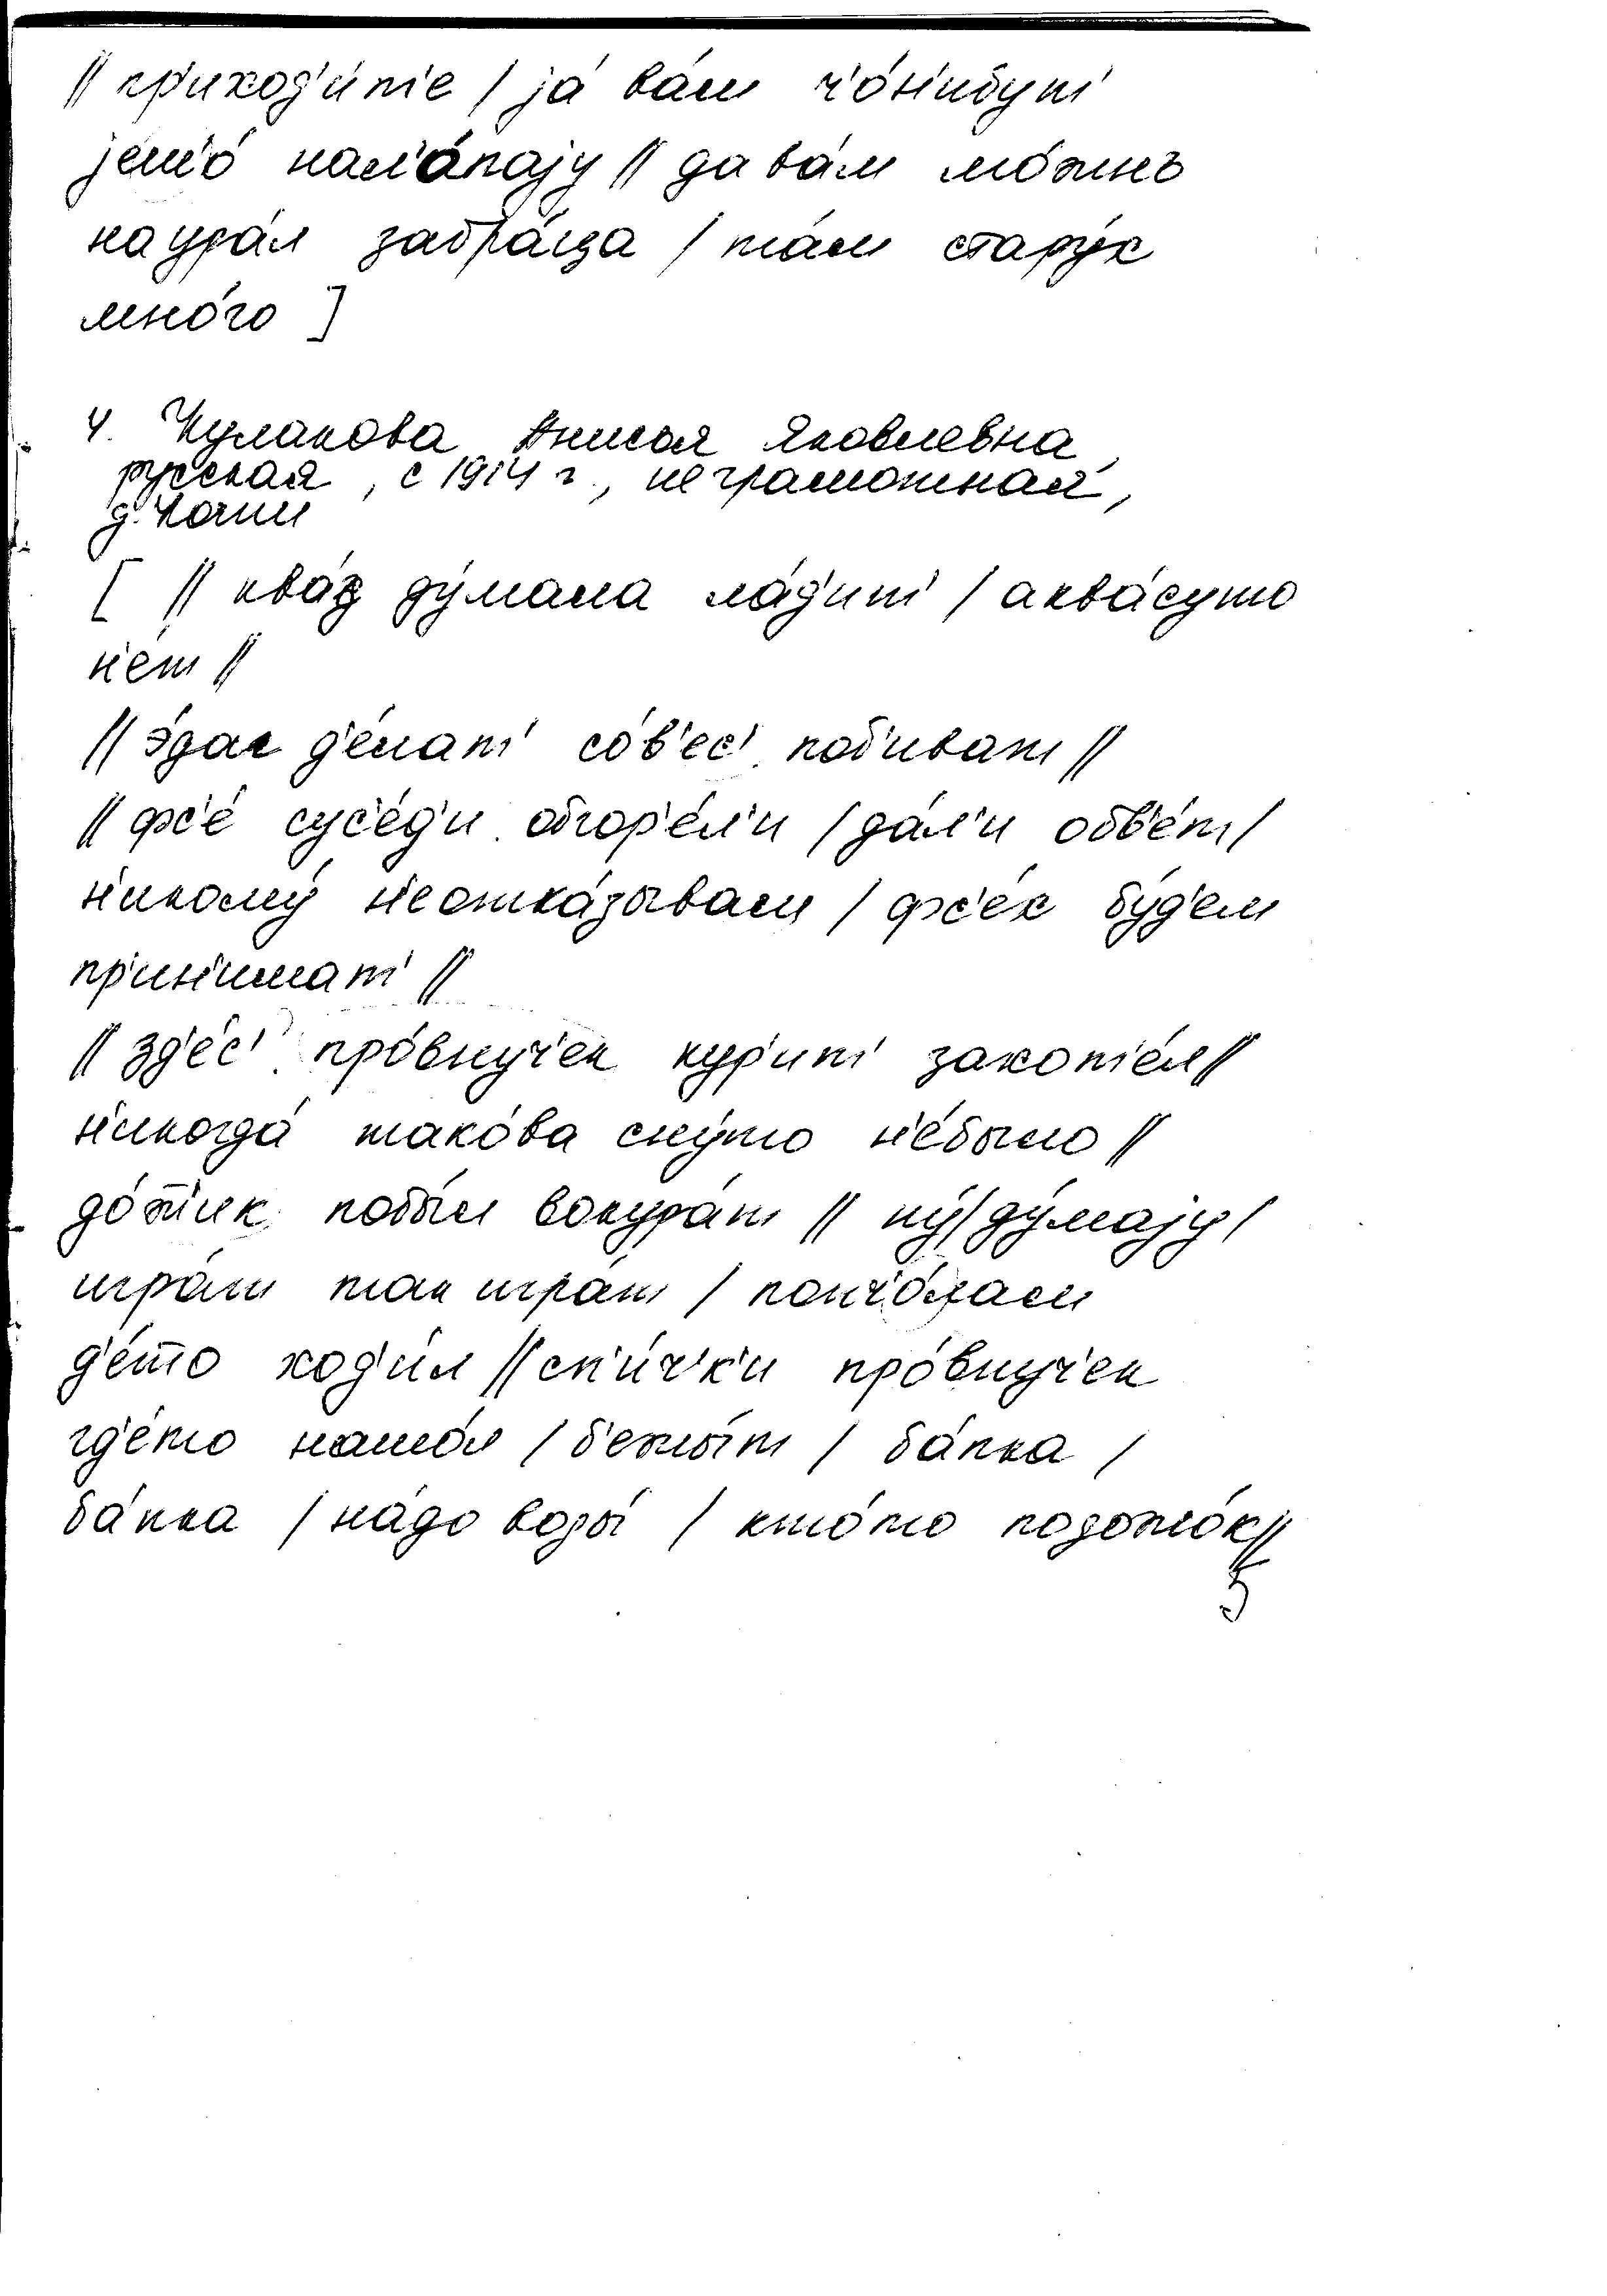 // пр'иход'и́т'е / jа́ ва́м ч'о́н'ибут'
jешо́ нал'а́паjу // да ва́м мо́жнъ
на ура́л забра́ца / та́м стару́х
мно́го ]
4. Кулакова Анисья Яковлевна,
русская, с 1914 г., неграмотная,
д. Кочни
[ // ква́з ду́мала ла́д'ит' / аква́суто
н'е́т //
// э́дак д'е́лат' со́в'ес' поб'иват //
// фс'е́ сус'е́д'и обгор'е́л'и / да́л'и обв'е́т /
н'икому́ н'еотка́зывам / фс'е́х бу́д'ем
пр'ин'имат' //
// зд'е́с' про́внуч'ек кур'ит' захот'е́л //
н'икогда́ тако́ва ску́то н'е́было //
до́тик побы́л вокура́т // ну́ / ду́маjу /
игра́т так игра́т / попч'о́лам
д'е́то ход'и́л // сп'и́ч'к'и про́внуч'ек
гд'е́то нашо́л / б'ежы́т / ба́пка /
ба́пка / на́до воды́ / кто́то подожо́к //
5